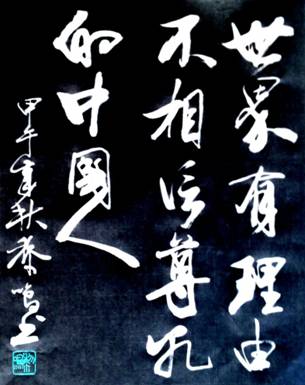 世界有理由
不相信尊孔
的中國人
甲午年秋